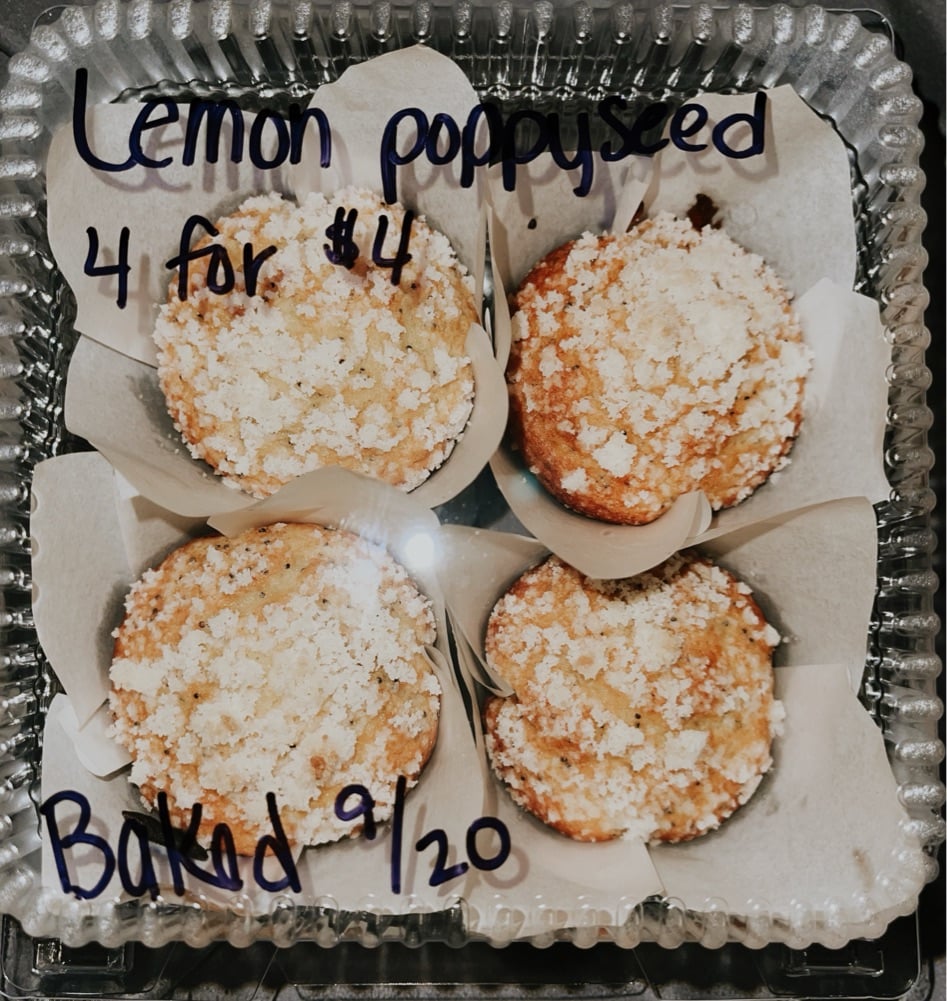 Lemon poppyseed
4 for $4
Baked 9/20